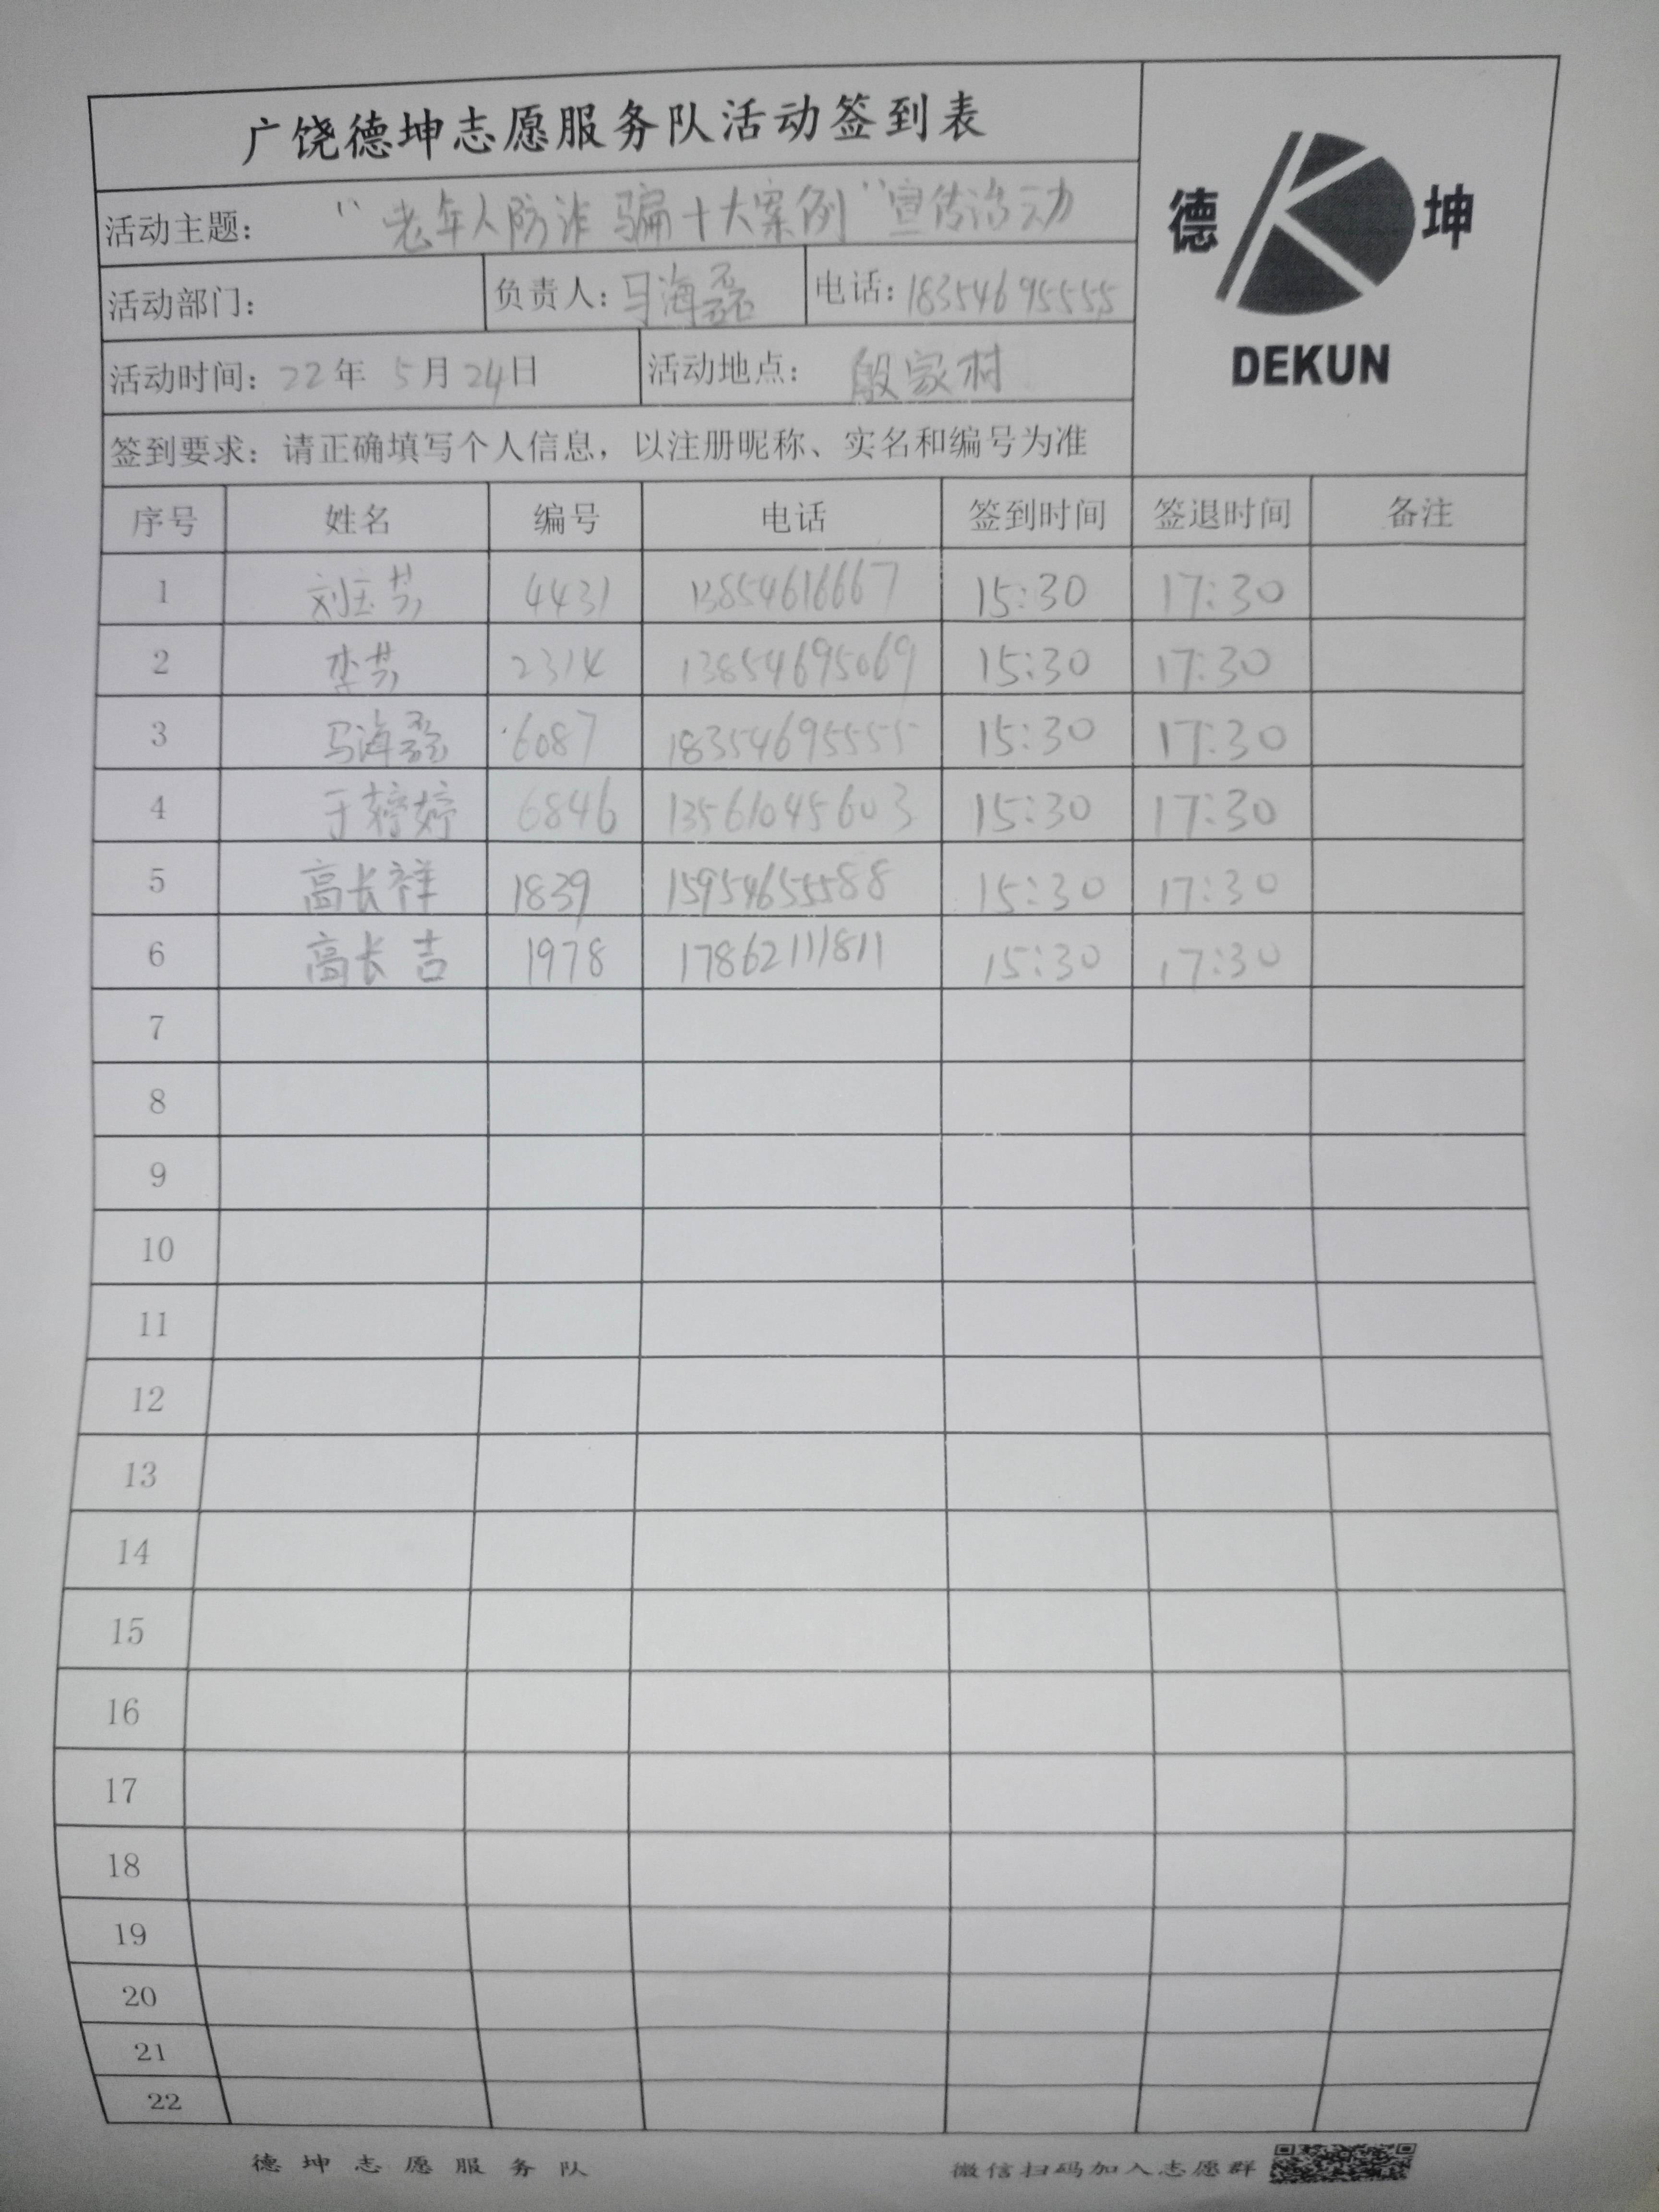 广饶德坤志愿服务队活动签到表
德 坤
DEKUN
活动主题: "老年人防诈骗十大案例"宣传活动
活动部门: 负责人: 马海磊 电话: 18354695555
活动时间: 22年 5月24日 活动地点: 殷家村
签到要求: 请正确填写个人信息，以注册昵称、实名和编号为准
序号 姓名 编号 电话 签到时间 签退时间 备注
1 刘玉芳 4431 13854616667 15:30 17:30
2 李芳 2314 13854695069 15:30 17:30
3 马海磊 6087 18354695555 15:30 17:30
4 于婷婷 6846 13561045603 15:30 17:30
5 高长祥 1839 15954655588 15:30 17:30
6 高长吉 1978 17862111811 15:30 17:30
7
8
9
10
11
12
13
14
15
16
17
18
19
20
21
22
德坤志愿服务队 微信扫码加入志愿群